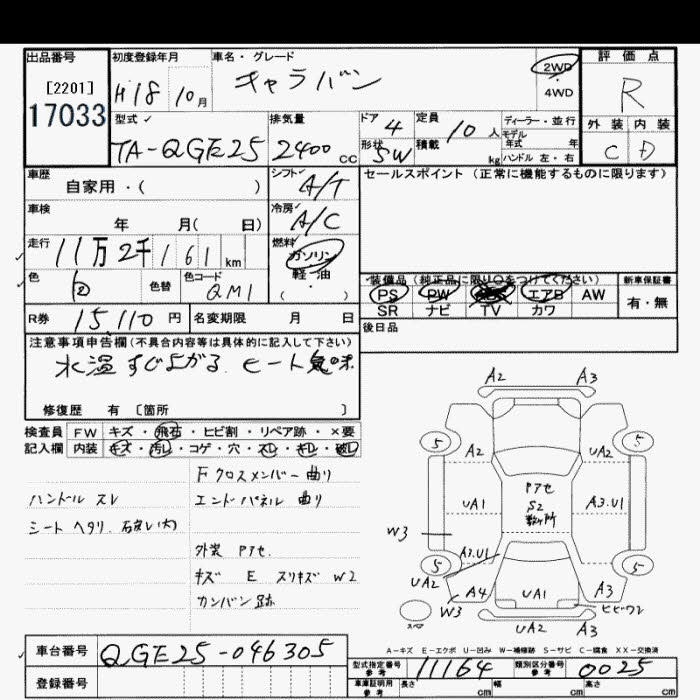 出品番号
[2201]
17033
初度登録年月
H18 10月
車名・グレード
キャラバン
2WD
4WD
評価点
R
外装 内装
C D
型式
TA-QGE25
排気量
2400 CC
ドア 4
形状 SW
定員 10 人
積載 kg
ディーラー・並行
モデル
年式 年
ハンドル 左・右
車歴
自家用・( )
シフト A/T
セールスポイント (正常に機能するものに限ります)
車検
年 月( 日)
冷房 A/C
走行 11万2千161 km
燃料
ガソリン
軽・油
( )
色 白 色替
色コード QM1
装備品 (純正品に限り○をつけてください)
PS PW エアB AW
SR ナビ TV カワ
新車保証書
有・無
R券 15,110 円
名変期限 月 日
後日品
注意事項申告欄(不具合内容等は具体的に記入して下さい)
水温すぐ上がる、ヒート気味
修復歴 有 [箇所 ]
検査員 FW キズ・飛石・ヒビ割・リペア跡・×要
記入欄 内装 キズ・汚レ・コゲ・穴・スレ・キレ・破レ
Fクロスメンバー曲り
ハンドルスレ
エンドパネル曲り
シートヘタリ、破レ(大)
外装 Pアセ
キズ E スリキズ W2
カンバン跡
A2 A3
5 5
A2 UA2
UA1
Pアセ
S2
数ヶ所
A3.U1
W3
A3.U1
5 5
UA2
A4
W3
UA1
A3
スペア
ヒビ・ワレ
UA2 A3
A-キズ E-エクボ U-凹み W-補修跡 S-サビ C-腐食 XX-交換済
車台番号 QGE25-046305
登録番号
型式指定番号
参考
11164
類別区分番号
参考
0025
車庫証明用
参考
長さ cm 幅 cm 高さ cm